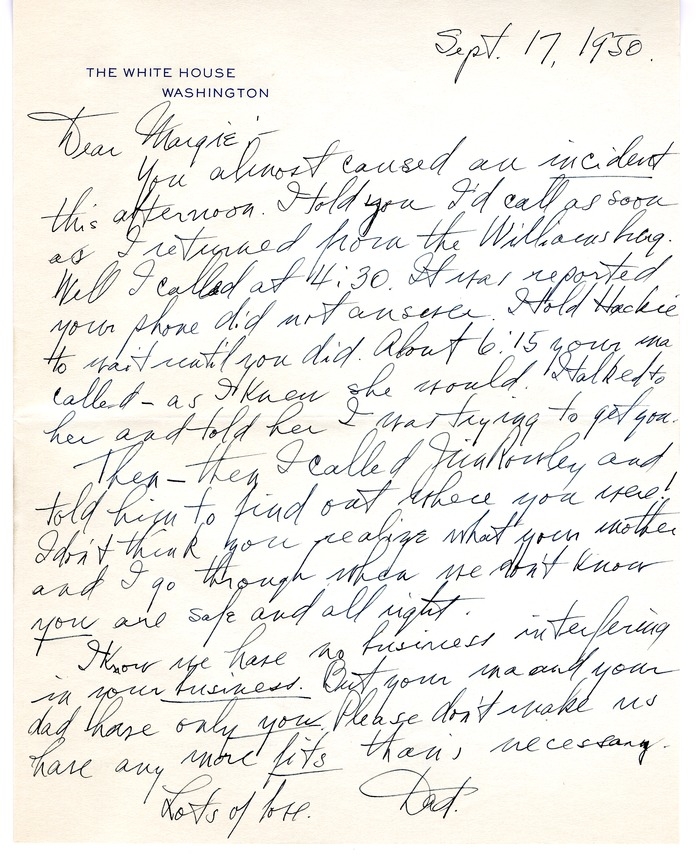 Sept. 17, 1950.
THE WHITE HOUSE
WASHINGTON
Dear Margie:-
You almost caused an incident
this afternoon. I told you I'd call as soon
as I returned from the Williamsburg.
Well I called at 4:30. It was reported
your phone did not answer. I told Hackie
to wait until you did. About 6:15 your ma
called – as I knew she would. I talked to
her and told her I was trying to get you.
Then – then I called Jim Rowley and
told him to find out where you were!
I don't think you realize what your mother
and I go through when we don't know
you are safe and all right.
I know we have no business interfering
in your business. But your ma and your
dad have only you. Please don't make us
have any more fits than's necessary.
Lots of love. Dad.